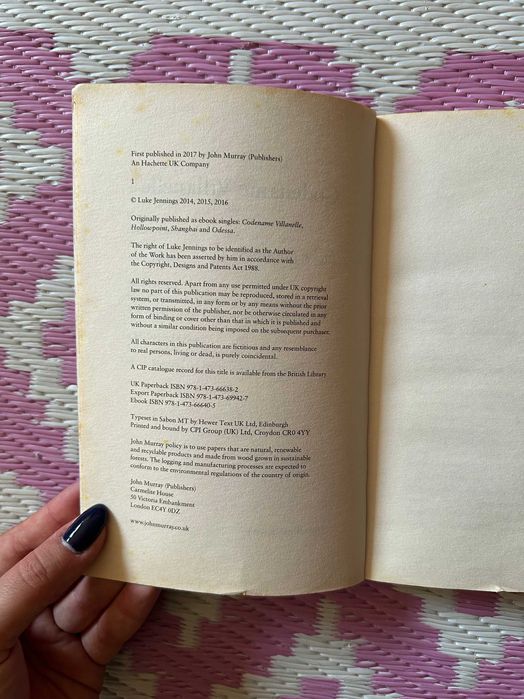 First published in 2017 by John Murray (Publishers)
An Hachette UK Company
1
© Luke Jennings 2014, 2015, 2016
Originally published as ebook singles: Codename Villanelle,
Hollowpoint, Shanghai and Odessa.
The right of Luke Jennings to be identified as the Author
of the Work has been asserted by him in accordance with
the Copyright, Designs and Patents Act 1988.
All rights reserved. Apart from any use permitted under UK copyright
law no part of this publication may be reproduced, stored in a retrieval
system, or transmitted, in any form or by any means without the prior
written permission of the publisher, nor be otherwise circulated in any
form of binding or cover other than that in which it is published and
without a similar condition being imposed on the subsequent purchaser.
All characters in this publication are fictitious and any resemblance
to real persons, living or dead, is purely coincidental.
A CIP catalogue record for this title is available from the British Library
UK Paperback ISBN 978-1-473-66638-2
Export Paperback ISBN 978-1-473-69942-7
Ebook ISBN 978-1-473-66640-5
Typeset in Sabon MT by Hewer Text UK Ltd, Edinburgh
Printed and bound by CPI Group (UK) Ltd, Croydon CR0 4YY
John Murray policy is to use papers that are natural, renewable
and recyclable products and made from wood grown in sustainable
forests. The logging and manufacturing processes are expected to
conform to the environmental regulations of the country of origin.
John Murray (Publishers)
Carmelite House
50 Victoria Embankment
London EC4Y 0DZ
www.johnmurray.co.uk